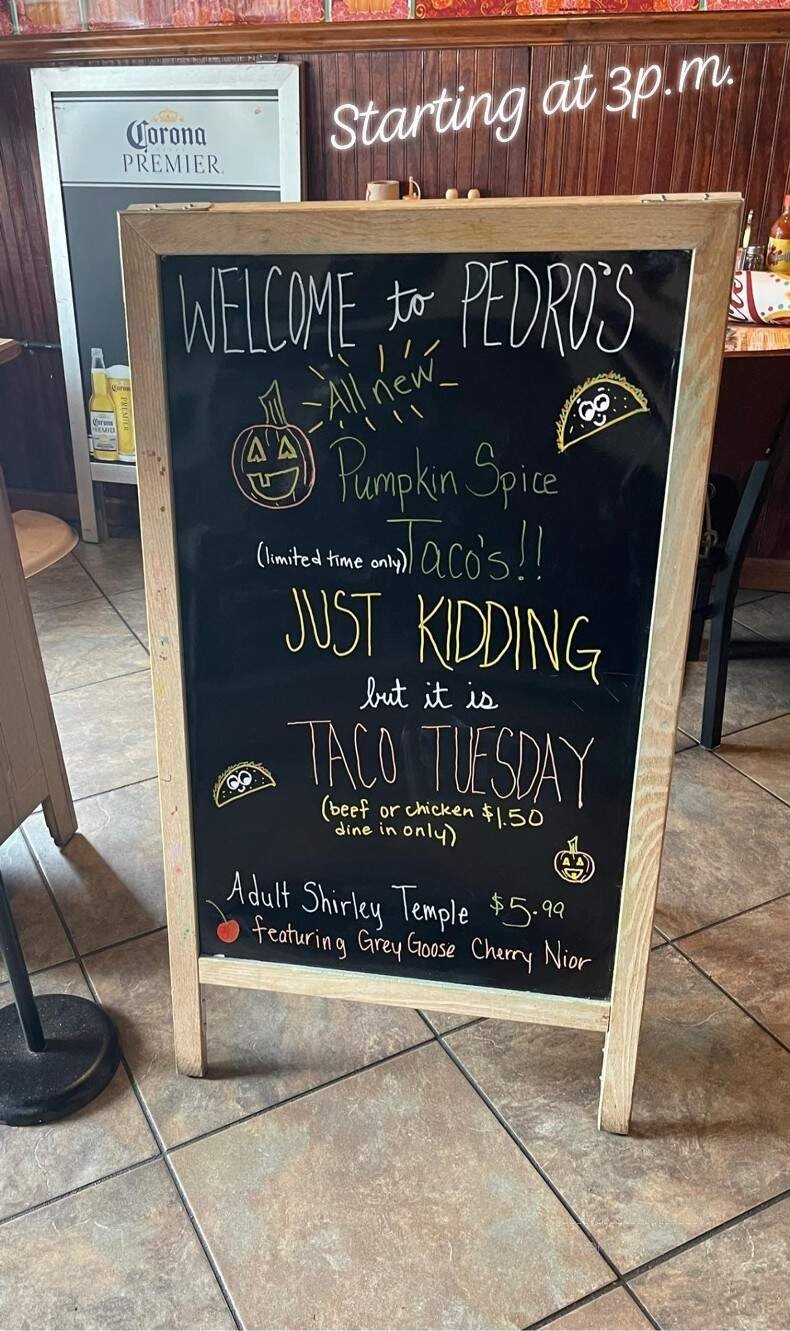 Starting at 3p.m.
Corona
PREMIER
WELCOME to PEDRO'S
All new
Pumpkin Spice
(limited time only) Taco's!!
JUST KIDDING
but it is
TACO TUESDAY
(beef or chicken $1.50
dine in only)
Adult Shirley Temple $5.99
featuring Grey Goose Cherry Nior